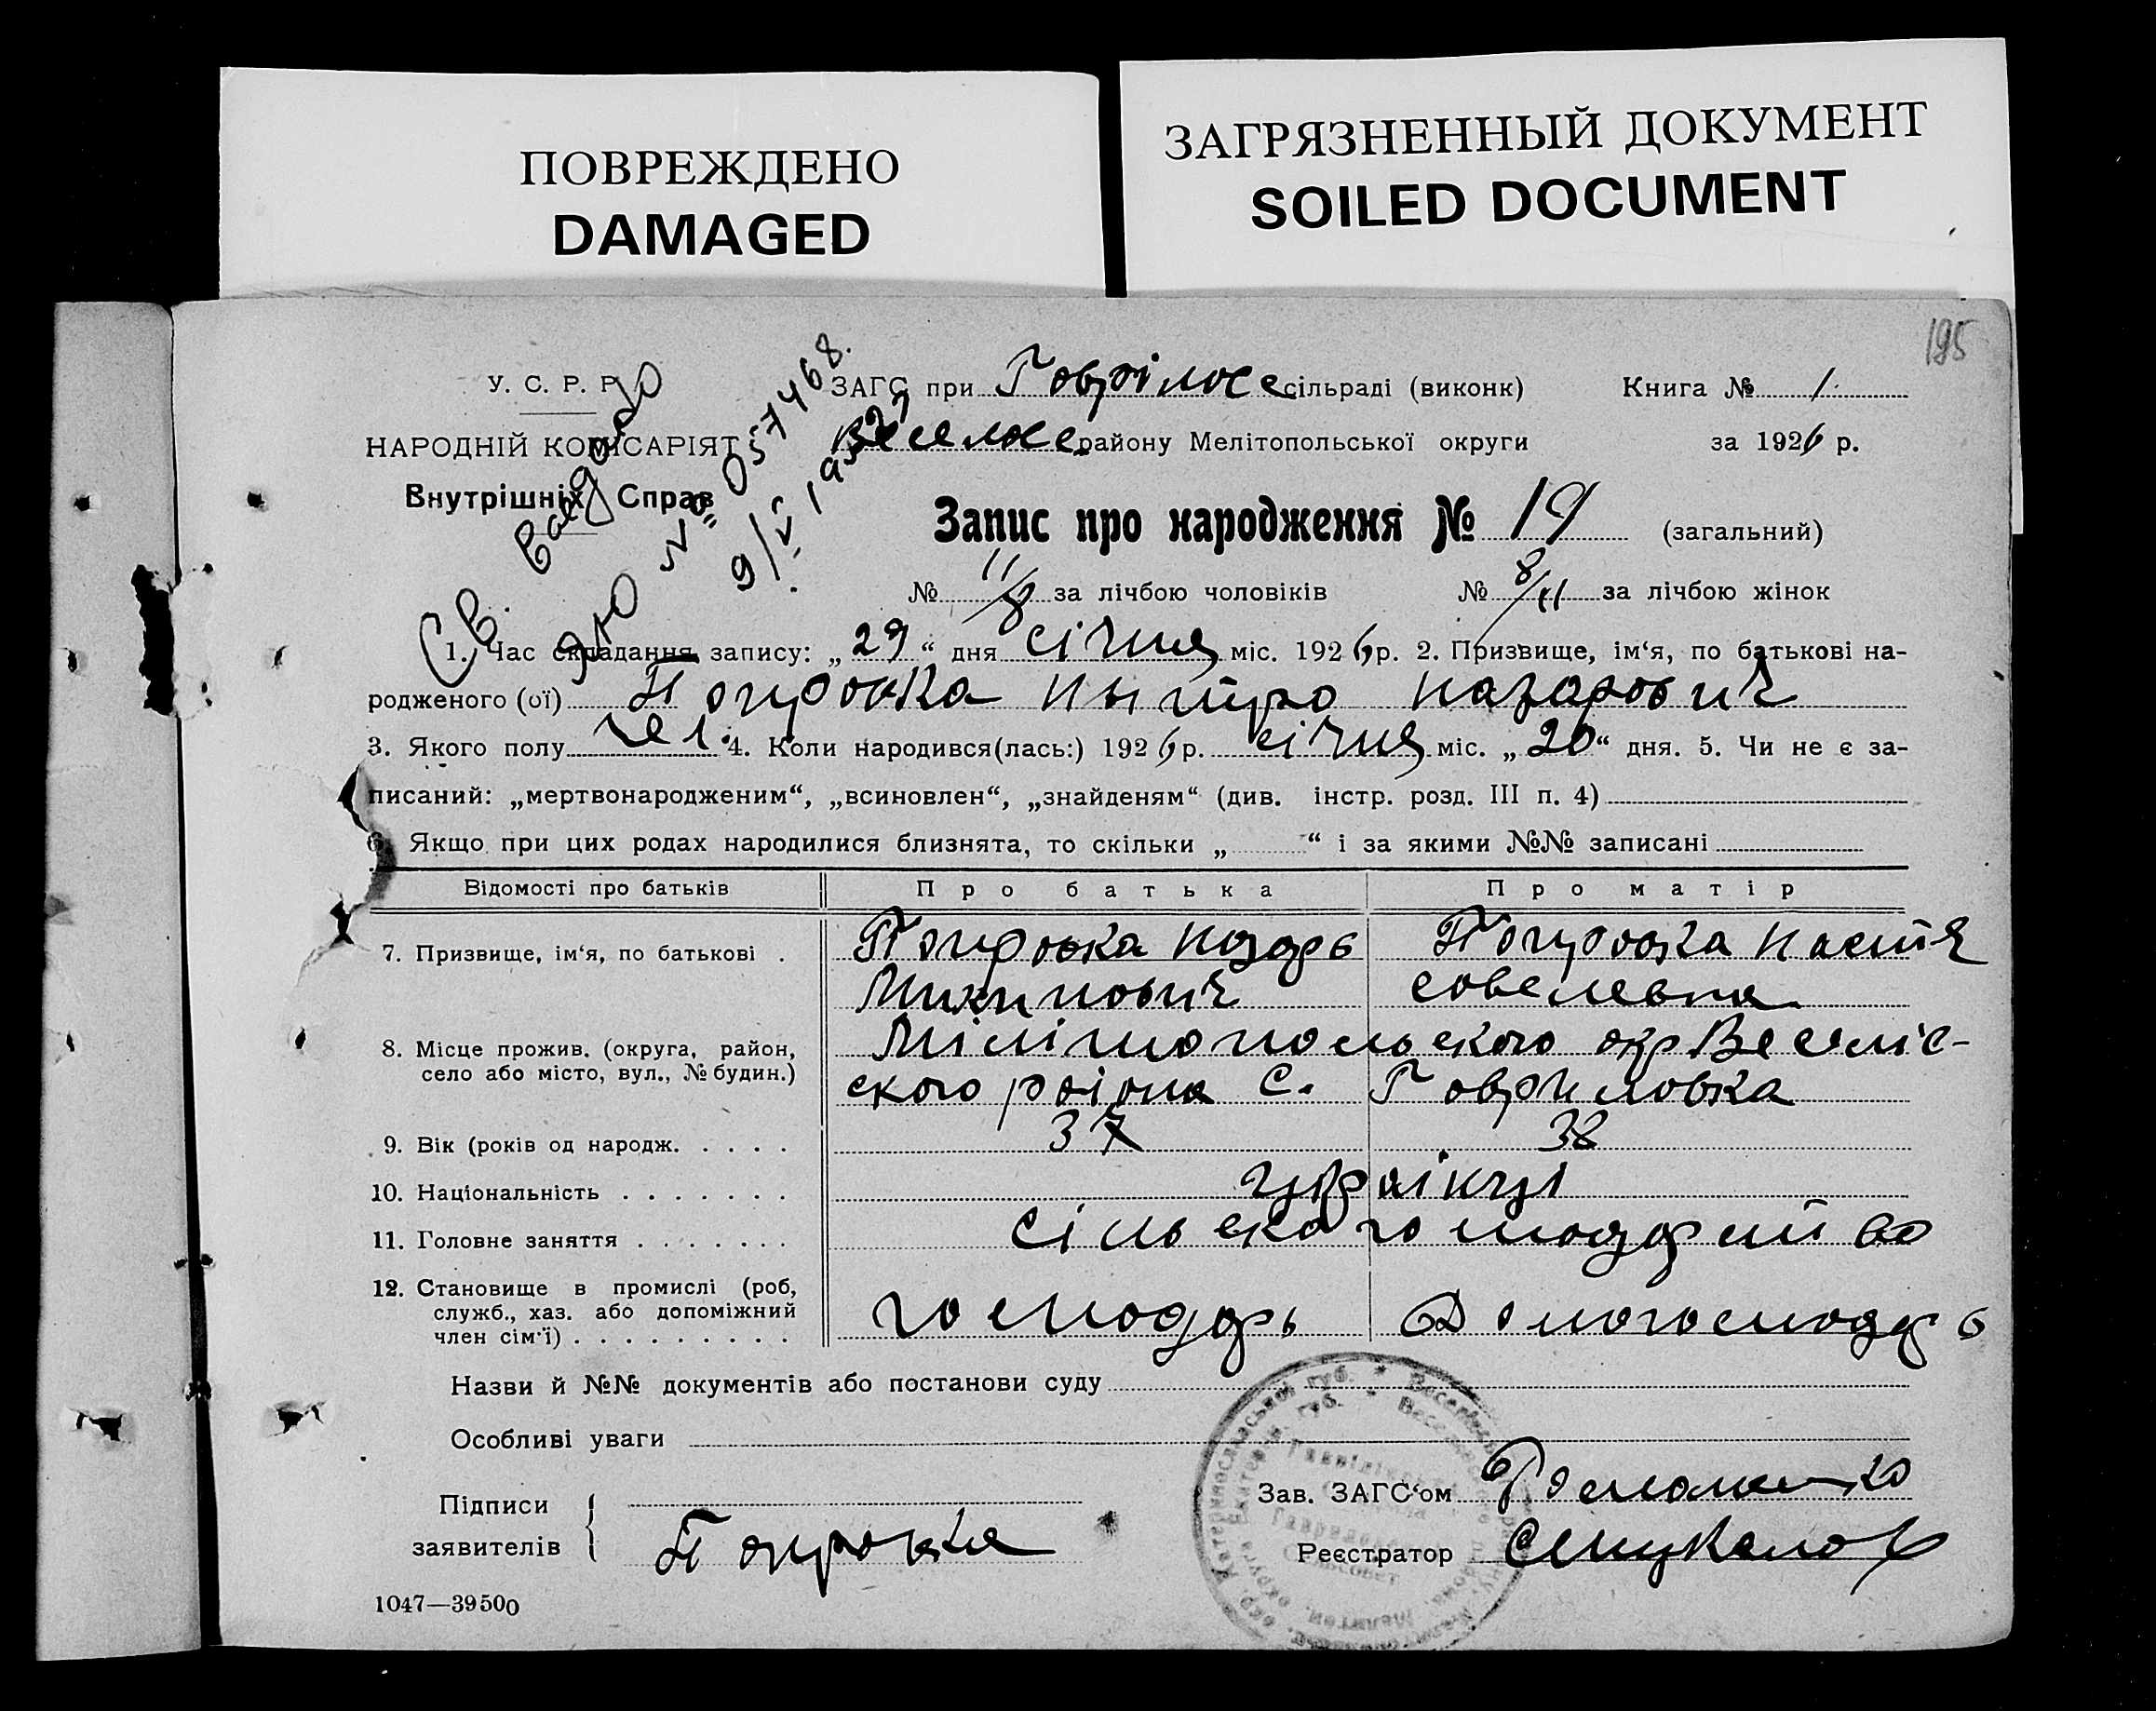 ПОВРЕЖДЕНО
DAMAGED
ЗАГРЯЗНЕННЫЙ ДОКУМЕНТ
SOILED DOCUMENT
195
У. С. Р. Р.
ЗАГС при Говрілосе сільраді (виконк) Книга № 1.
НАРОДНІЙ КОМІСАРІЯТ Веселосе району Мелітопольської округи за 1926 р.
Внутрішніх Справ
Св. Видано
ЯЮ № 057468.
9/V 195
Запис про народження № 19 (загальний)
№ 11/8 за лічбою чоловіків № 8/11 за лічбою жінок
1. Час складання запису: „29“ дня січня міс. 1926 р. 2. Призвище, ім‘я, по батькові на-
родженого (ої) Попровка Пытро Назарович
3. Якого полу чел. 4. Коли народився(лась:) 1926 р. січня міс. „20“ дня. 5. Чи не є за-
писаний: „мертвонародженим“, „всиновлен“, „знайденям“ (див. інстр. розд. III п. 4)
6. Якщо при цих родах народилися близнята, то скільки „ “ і за якими №№ записані
Відомості про батьків Про батька Про матір
7. Призвище, ім‘я, по батькові . Попровка Назарь Попровка Настя
Микитович Совелевна
8. Місце прожив. (округа, район, Мілітопольского окр Веселіс-
село або місто, вул., № будин.) ского раіона с. Говриловка
9. Вік (років од народж. . . . . 37 38
10. Національність . . . . . . . україкці
11. Головне заняття . . . . . . . сільско господарство
12. Становище в промислі (роб,
служб., хаз. або допоміжний господарь Домогосподарь
член сім‘ї) . . . . . . . . .
Назви й №№ документів або постанови суду
Особливі уваги
Підписи Зав. ЗАГС‘ом
заявителів Попровка Реєстратор
1047—39500